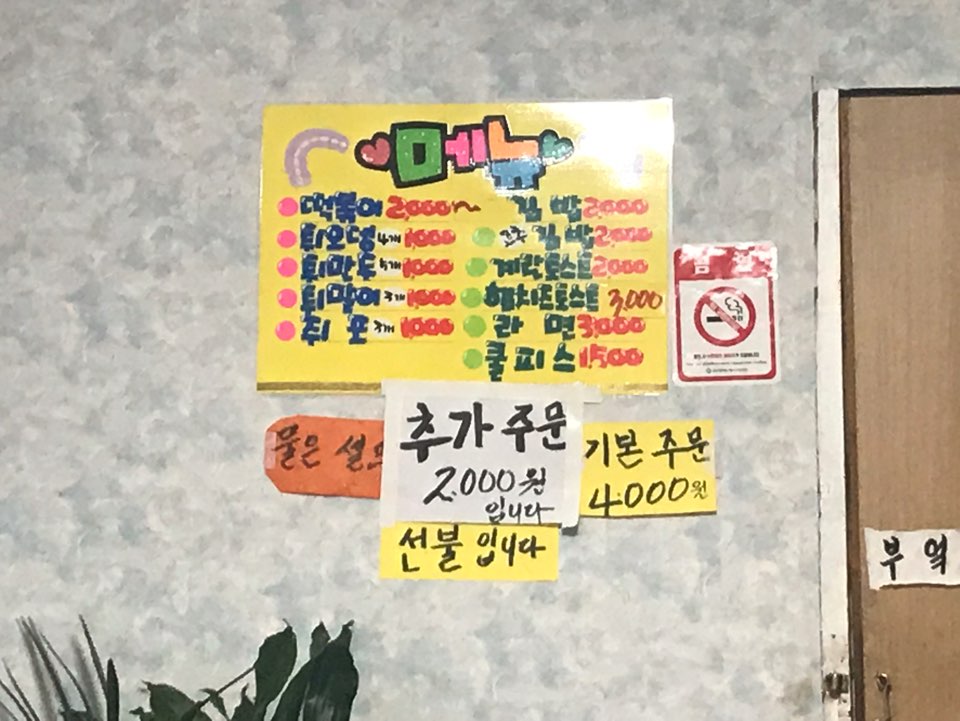 메뉴
떡볶이 2,000~
튀오뎅 4개 1,000
튀만두 5개 1,000
튀막이 3개 1,000
쥐포 3개 1,000
김밥 2,000
김밥 2,000
계란토스트 2,000
햄치즈토스트 3,000
라면 3,000
쿨피스 1,500
금연
물은 셀프
추가 주문
2,000원
입니다
기본 주문
4,000원
선불 입니다
부엌